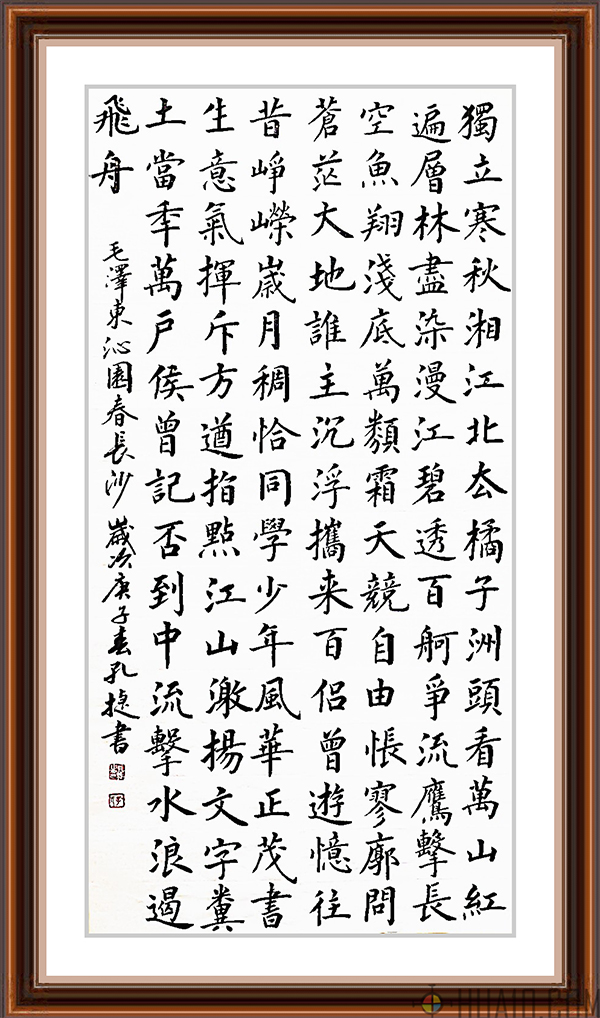 獨立寒秋湘江北去橘子洲頭看萬山紅
遍層林盡染漫江碧透百舸爭流鷹擊長
空魚翔淺底萬類霜天競自由悵寥廓問
蒼茫大地誰主沉浮攜来百侶曾遊憶往
昔崢嶸歲月稠恰同學少年風華正茂書
生意氣揮斥方遒指點江山激揚文字糞
土當秊萬戶侯曾記否到中流擊水浪遏
飛舟 毛澤東沁園春長沙 歲次庚子春孔捷書
HUA10.COM